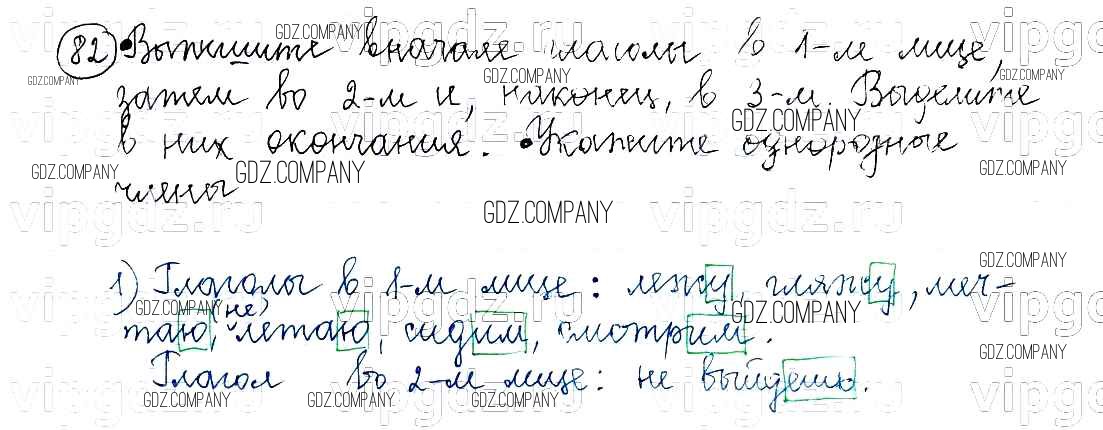 82 • Выпишите вначале глаголы в 1-м лице,
затем во 2-м и, наконец, в 3-м. Выделите
в них окончания. • Укажите однородные
члены
1) Глаголы в 1-м лице: лежу, гляжу, меч-
таю, (не) летаю, сидим, смотрим.
Глагол во 2-м лице: не выйдешь.
GDZ.COMPANY
vipgdz.ru